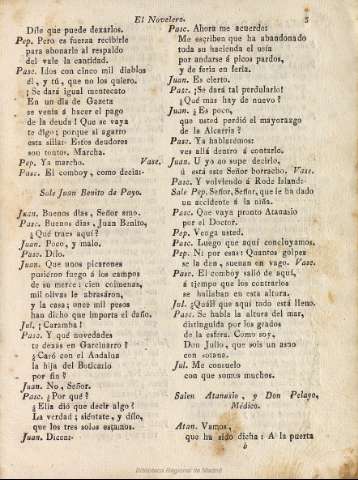 El Novelero. 5
Dile que puede dexarlos.
Pep. Pero es fuerza recibirle
para abonarle al respaldo
del vale la cantidad.
Pasc. Idos con cinco mil diablos
él, y tú, que no los quiero.
¡Se dará igual mentecato
En un dia de Gazeta
se venía á hacer el pago
de la deuda! Que se vaya
te digo; porque si agarro
esta silla: Estos deudores
son tontos. Marcha.
Pep. Ya marcho. Vase.
Pasc. El comboy, como decia:-
Sale Juan Benito de Payo.
Juan. Buenos dias, Señor amo.
Pasc. Buenos dias, Juan Benito,
¿Qué traes aquí?
Juan. Poco, y malo.
Pasc. Dilo.
Juan. Que unos picarones
pusieron fuego á los campos
de su merce: cien colmenas,
mil olivas le abrasáron,
y la casa; once mil pesos
han dicho que importa el daño.
Jul. ¡Caramba!
Pasc. Y qué novedades
te dexas en Garcinarro?
¿Caró con el Andaluz
la hija del Boticario
por fin?
Juan. No, Señor.
Pasc. ¿Por qué?
¿Ella dió que decir algo?
La verdad; siéntate, y dílo,
que los tres solos estamos.
Juan. Dicen:-
Pasc. Ahora me acuerdo:
Me escriben que ha abandonado
toda su hacienda el usía
por andarse á picos pardos,
y de feria en feria.
Juan. Es cierto.
Pasc. ¿Se dará tal perdulario!
¿Qué mas hay de nuevo?
Juan. ¿Es poco,
que usted perdió el mayorazgo
de la Alcarria?
Pasc. Ya hablarémos:
ves allá dentro á contarlo.
Juan. U yo no supe decirlo,
ú está este Señor borracho. Vase.
Pasc. Y volviendo á Rode Island:-
Sale Pep. Señor, Señor, que le ha dado
un accidente á la niña.
Pasc. Que vaya pronto Atanasio
por el Doctor.
Pep. Venga usted.
Pasc. Luego que aquí concluyamos.
Pep. Ni por esas: Quantos golpes
se la den, suenan en vago. Vase.
Pasc. El comboy salió de aquí,
á tiempo que los contrarios
se hallaban en esta altura.
Jul. ¿Quál? que aquí todo está lleno.
Pasc. Se habla la altura del mar,
distinguida por los grados
de la esfera. Como soy,
Don Julio, que sois un asno
con sotana.
Jul. Me consuelo
con que somos muchos.
Salen Atanasio, y Don Pelayo,
Médico.
Atan. Vamos,
que ha sido dicha: A la puerta
b
Biblioteca Regional de Madrid